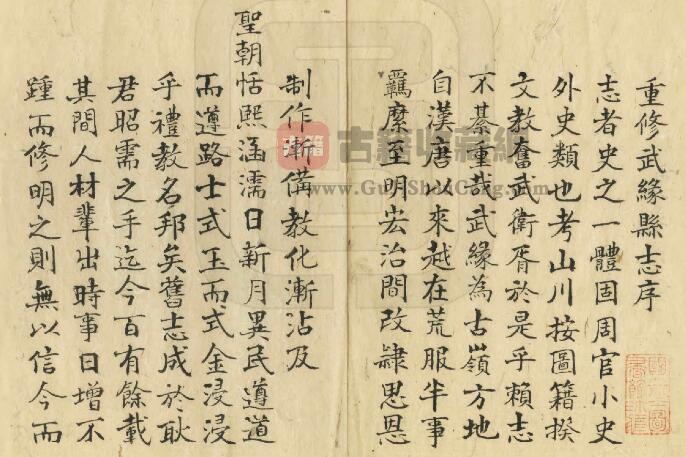 重修武緣縣志序
志者史之一體固周官小史
外史類也考山川按圖籍揆
文教奮武衛胥於是乎賴志
不綦重哉武緣為古嶺方地
自漢唐以來越在荒服半事
羈縻至明宏治間改隷思恩
制作漸備教化漸沾及
聖朝恬熙涵濡日新月異民遵道
而遵路士式玉而式金浸浸
乎禮教名邦矣舊志成於耿
君昭需之手迄今百有餘載
其間人材輩出時事日增不
踵而修明之則無以信今而
古籍收藏網
www.GuJiShuCang.com